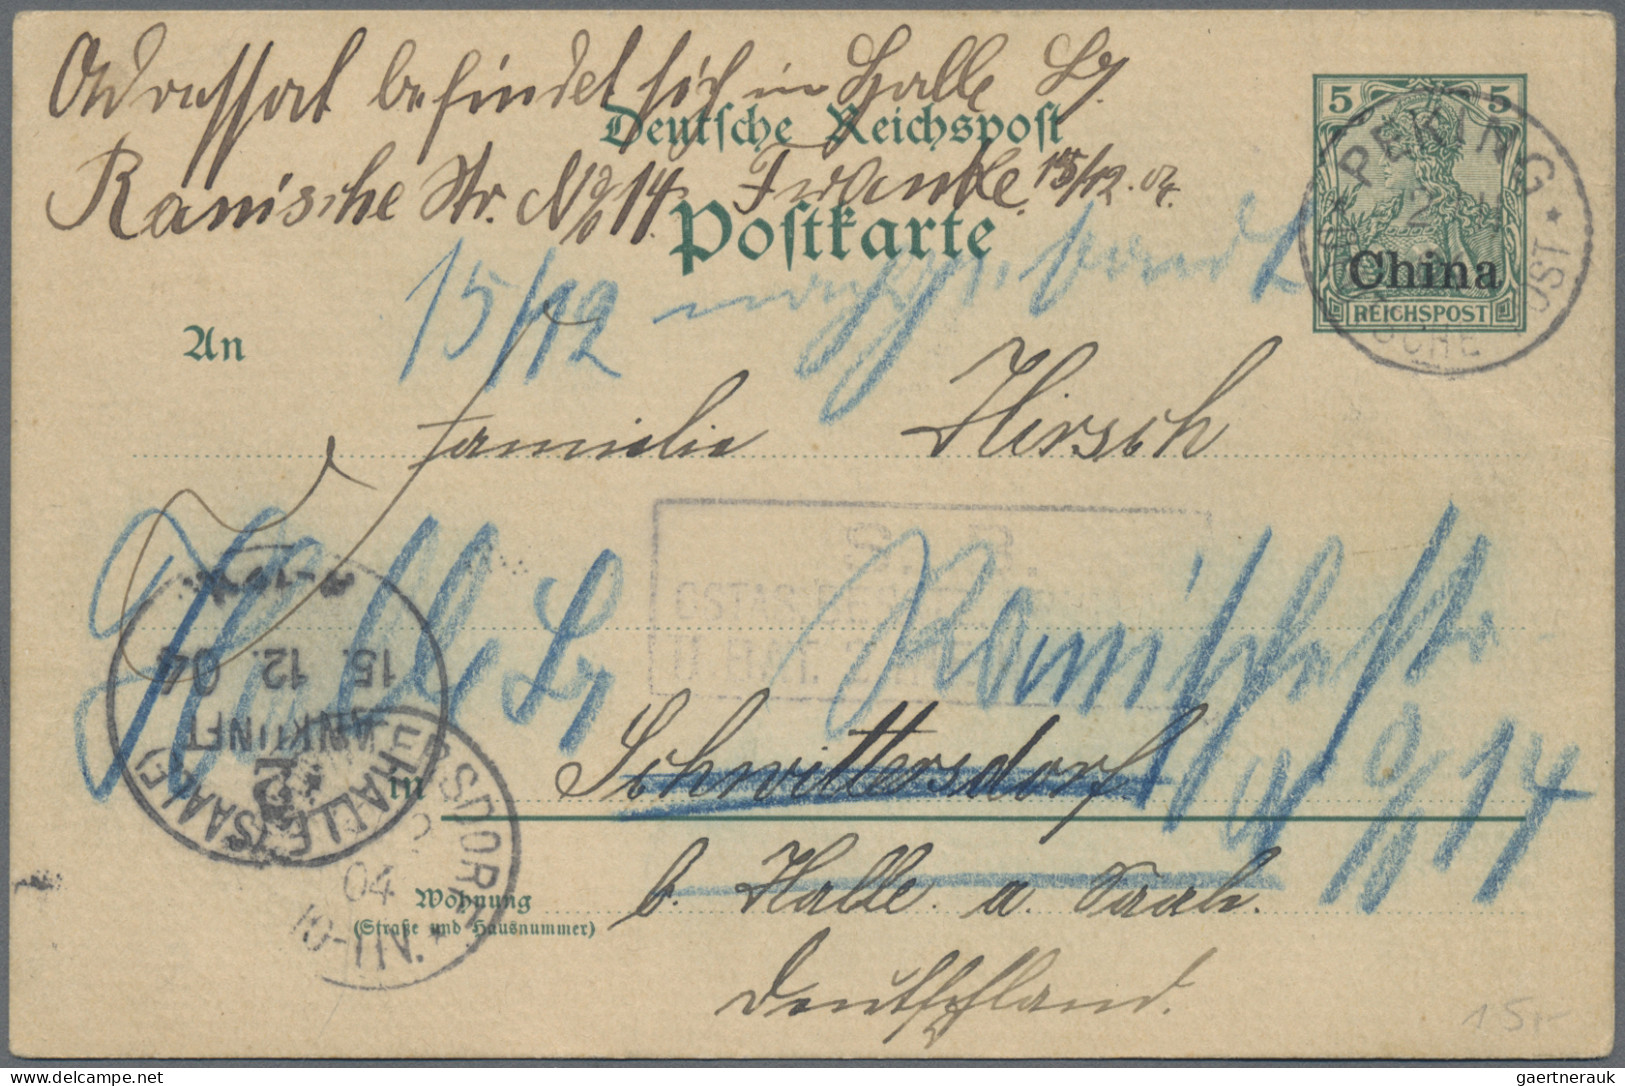 Adressat befindet sich in Halle S/.
Deutsche Reichspost
Ranische Str. No 14. Franke. 15/12. 04.
Postkarte
5 5
China
REICHSPOST
PEKING
DEUTSCHE POST
15/12 nachges.
An
Familie Hirsch
S. B.
OSTAS.
Halle S/ Ranische Str
No 14
15. 12. 04
ANKUNFT
HALLE (SAALE)
ERSDORF
04
10-11N.
in Schwittersdorf
b. Halle. a. Saale.
Wohnung
(Straße und Hausnummer)
Deutschland.
15.-
delcampe.net
gaertnerauk